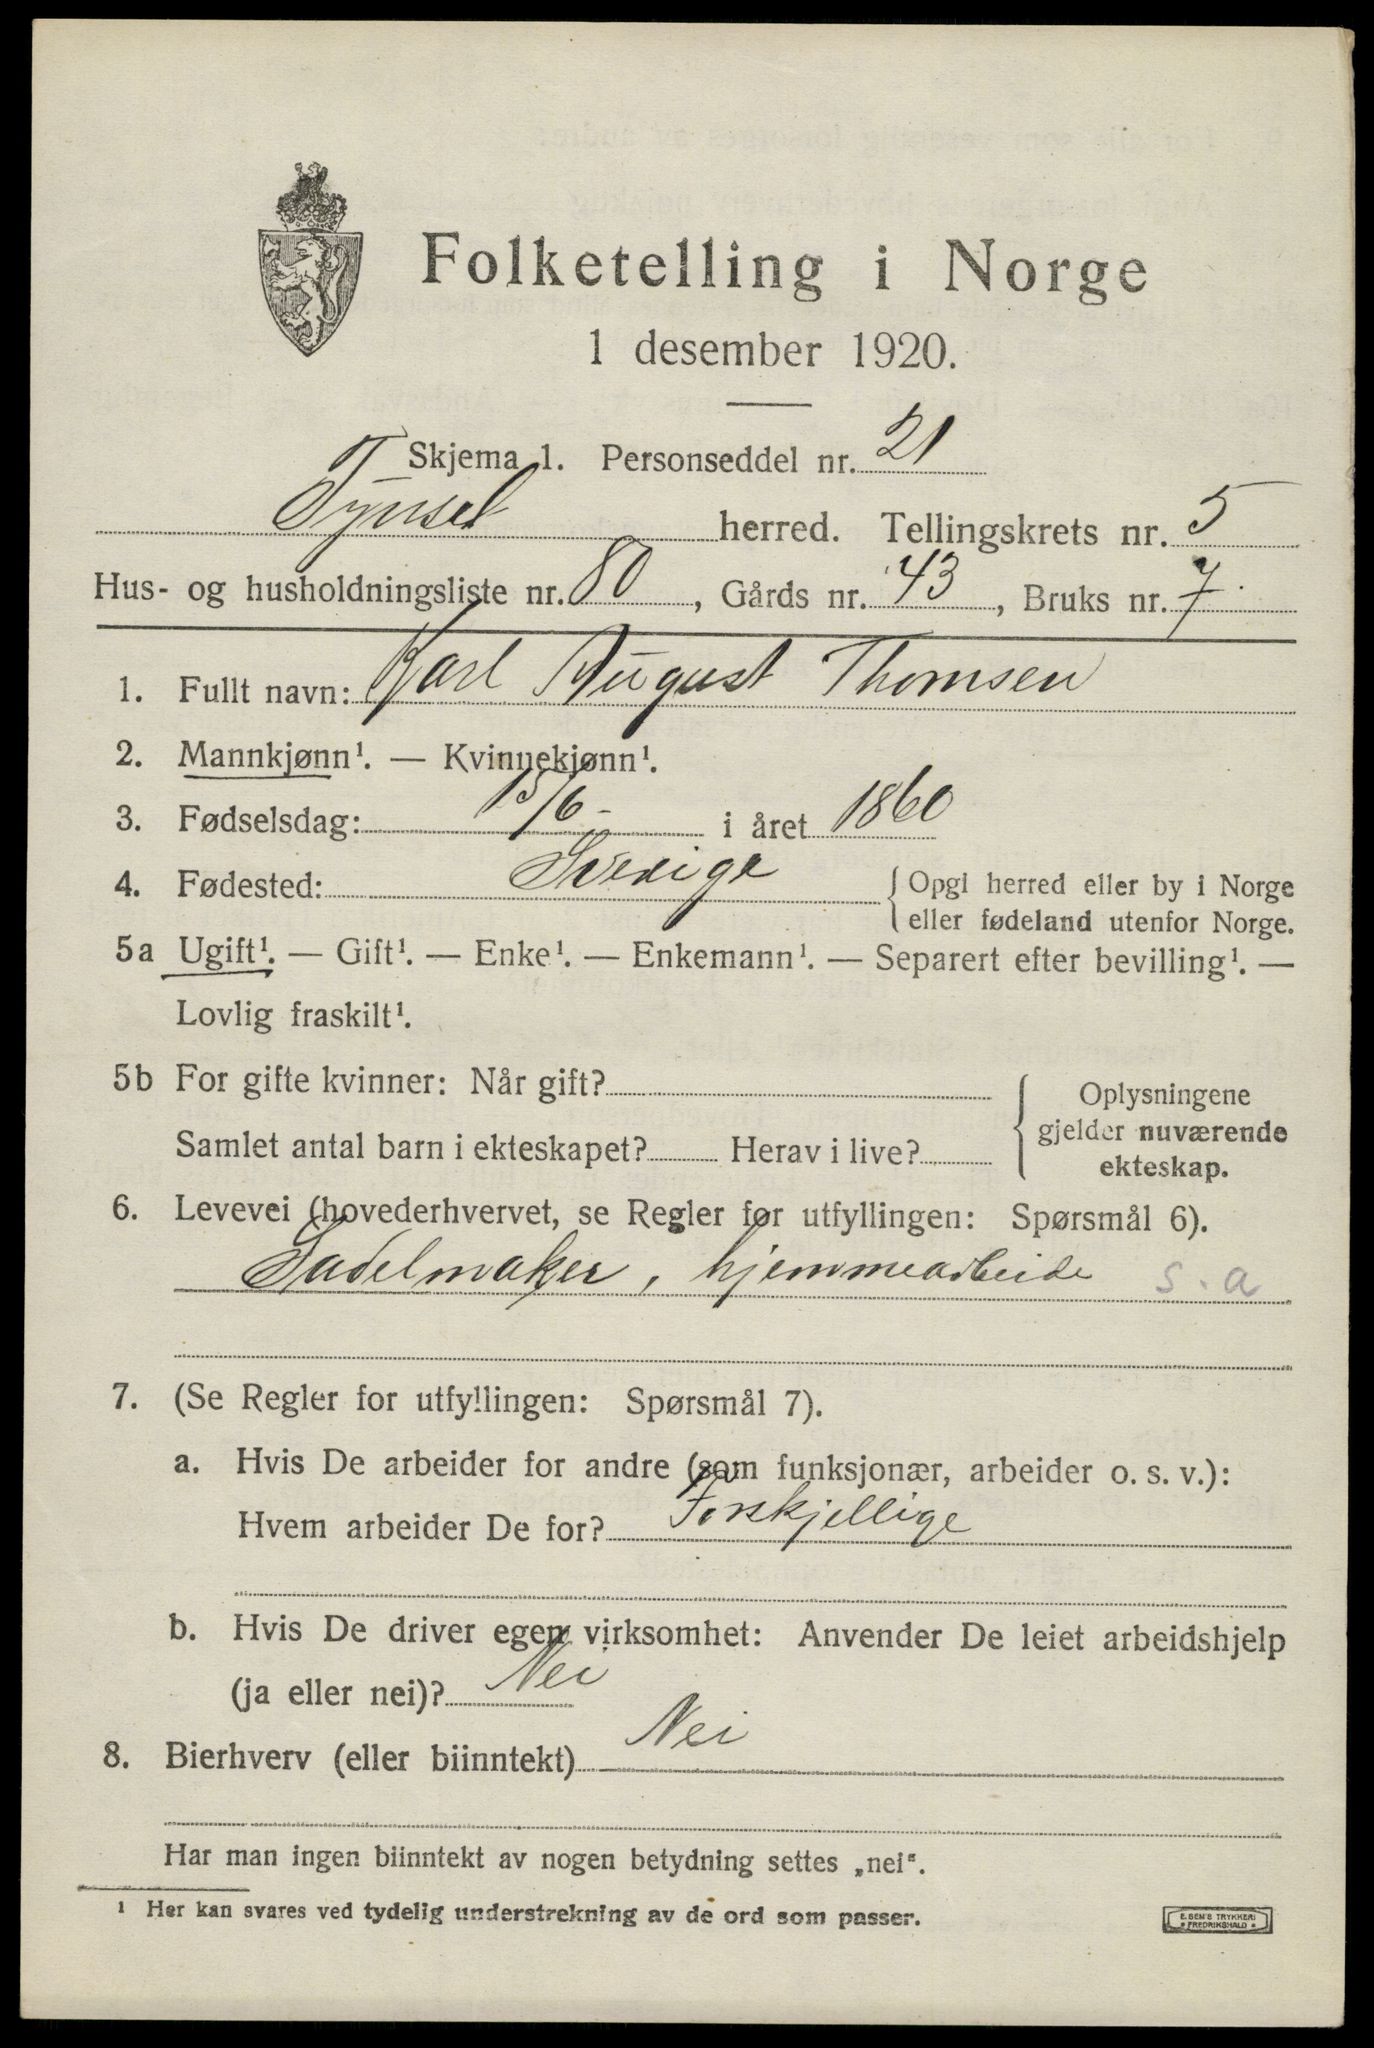 Folketelling i Norge
1 desember 1920.
Skjema 1. Personseddel nr. 21
Tynset herred. Tellingskrets nr. 5
Hus- og husholdningsliste nr. 80, Gårds nr. 43, Bruks nr. 7
1. Fullt navn: Karl August Thomsen
2. Mannkjønn¹. — Kvinnekjønn¹.
3. Fødselsdag: 15/6- i året 1860
4. Fødested: Sverige { Opgi herred eller by i Norge
eller fødeland utenfor Norge.
5a Ugift¹. — Gift¹. — Enke¹. — Enkemann¹. — Separert efter bevilling¹. —
Lovlig fraskilt¹.
5b For gifte kvinner: Når gift? { Oplysningene
gjelder nuværende
Samlet antal barn i ekteskapet? Herav i live?
ekteskap.
6. Levevei (hovederhvervet, se Regler for utfyllingen: Spørsmål 6).
Sadelmaker, hjemmearbeide s.a
7. (Se Regler for utfyllingen: Spørsmål 7).
a. Hvis De arbeider for andre (som funksjonær, arbeider o. s. v.):
Hvem arbeider De for? Forskjellige
b. Hvis De driver egen virksomhet: Anvender De leiet arbeidshjelp
(ja eller nei)? Nei
8. Bierhverv (eller biinntekt) Nei
Har man ingen biinntekt av nogen betydning settes „nei“.
¹ Her kan svares ved tydelig understrekning av de ord som passer.
E. SEM'S TRYKKERI
FREDRIKSHALD